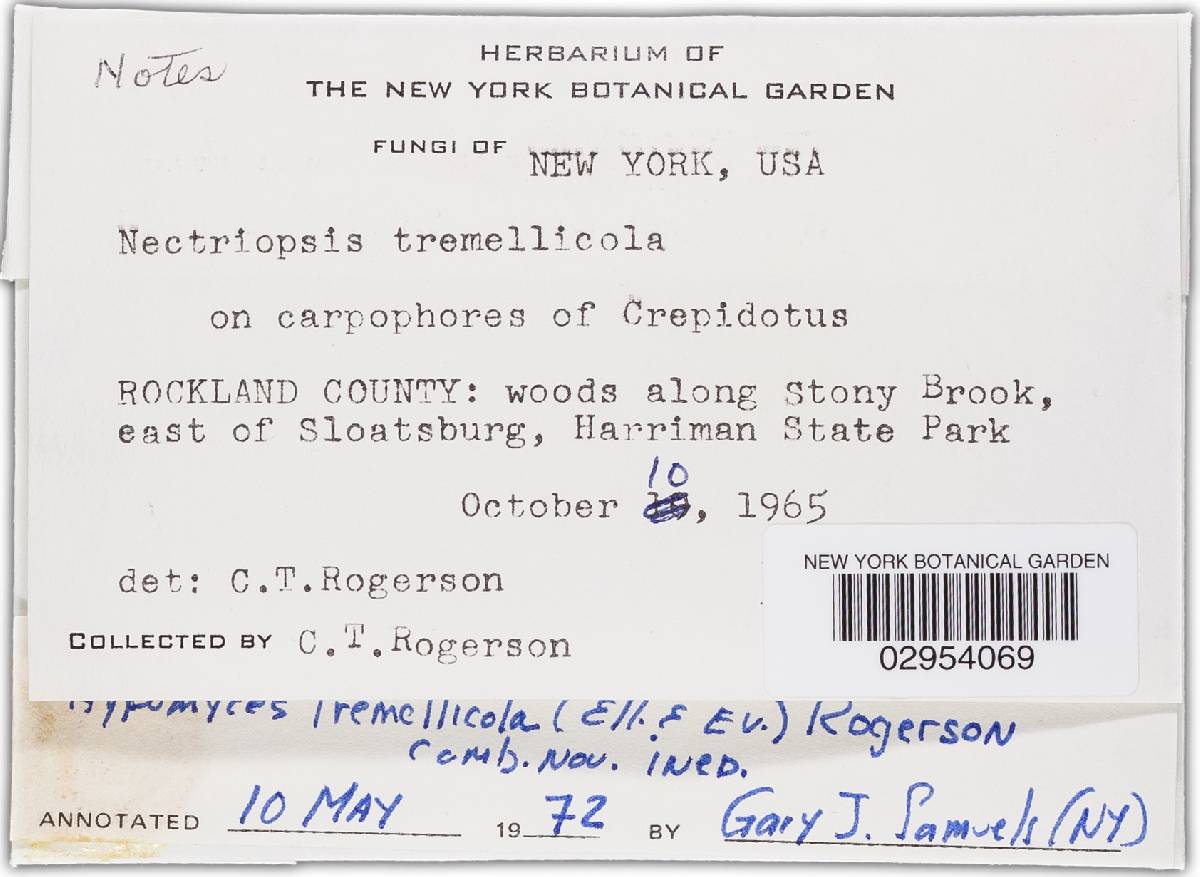 Notes
HERBARIUM OF
THE NEW YORK BOTANICAL GARDEN
FUNGI OF NEW YORK, USA
Nectriopsis tremellicola
on carpophores of Crepidotus
ROCKLAND COUNTY: woods along Stony Brook,
east of Sloatsburg, Harriman State Park
10
October , 1965
det: C.T.Rogerson
COLLECTED BY C.T.Rogerson
NEW YORK BOTANICAL GARDEN
02954069
Hypomyces Tremellicola (Ell. & Ev.) Rogerson
Comb. Nov. ined.
ANNOTATED 10 MAY 1972 BY Gary J. Samuels (NY)